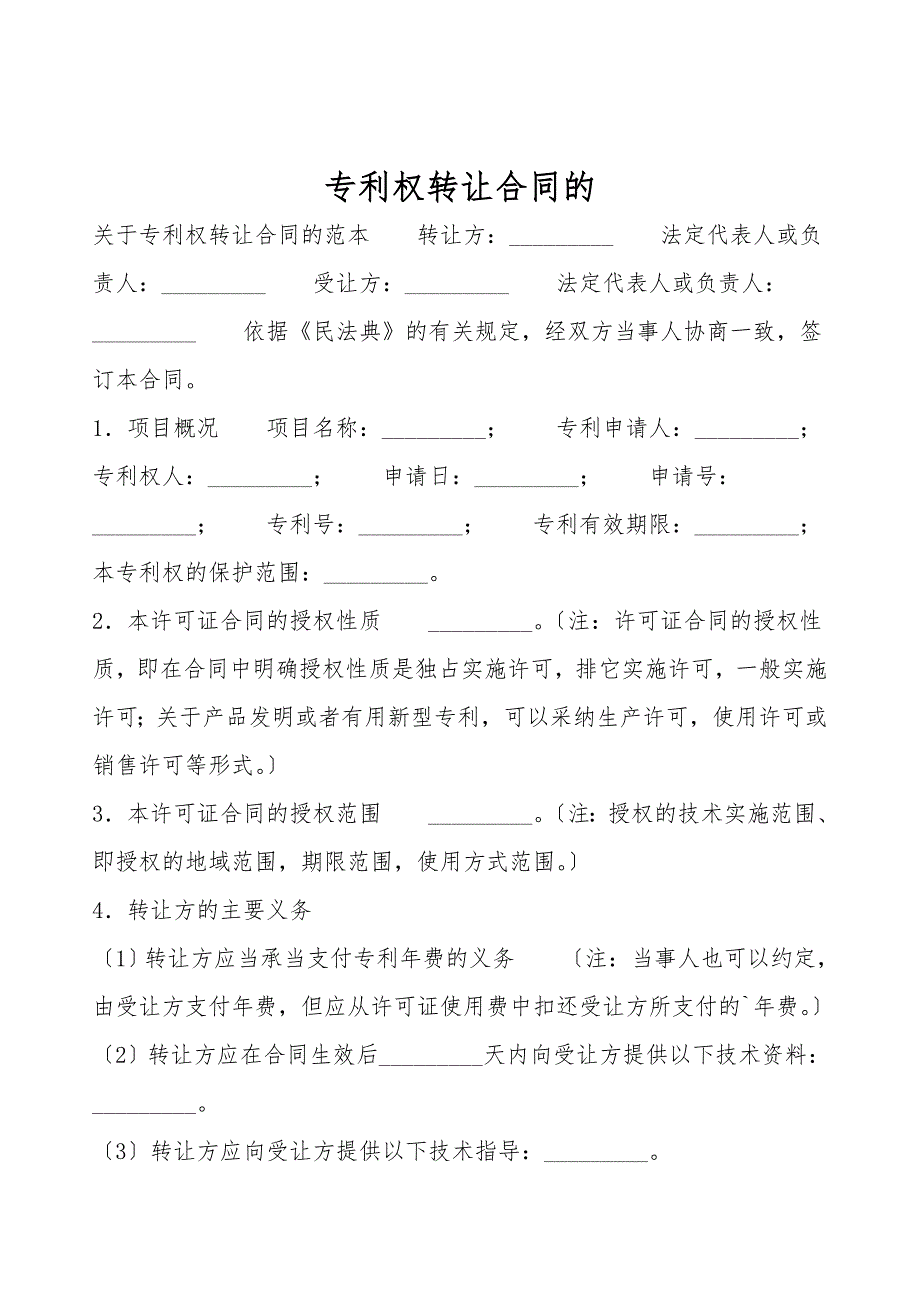 专利权转让合同的
关于专利权转让合同的范本　　转让方：_________　　法定代表人或负
责人：_________　　受让方：_________　　法定代表人或负责人：
_________　　依据《民法典》的有关规定，经双方当事人协商一致，签
订本合同。
1．项目概况　　项目名称：_________；　　专利申请人：_________；
专利权人：_________；　　申请日：_________；　　申请号：
_________；　　专利号：_________；　　专利有效期限：_________；
本专利权的保护范围：_________。
2．本许可证合同的授权性质　　_________。〔注：许可证合同的授权性
质，即在合同中明确授权性质是独占实施许可，排它实施许可，一般实施
许可；关于产品发明或者有用新型专利，可以采纳生产许可，使用许可或
销售许可等形式。〕
3．本许可证合同的授权范围　　_________。〔注：授权的技术实施范围、
即授权的地域范围，期限范围，使用方式范围。〕
4．转让方的主要义务
〔1〕转让方应当承当支付专利年费的义务　　〔注：当事人也可以约定，
由受让方支付年费，但应从许可证使用费中扣还受让方所支付的`年费。〕
〔2〕转让方应在合同生效后_________天内向受让方提供以下技术资料：
_________。
〔3〕转让方应向受让方提供以下技术指导：_________。